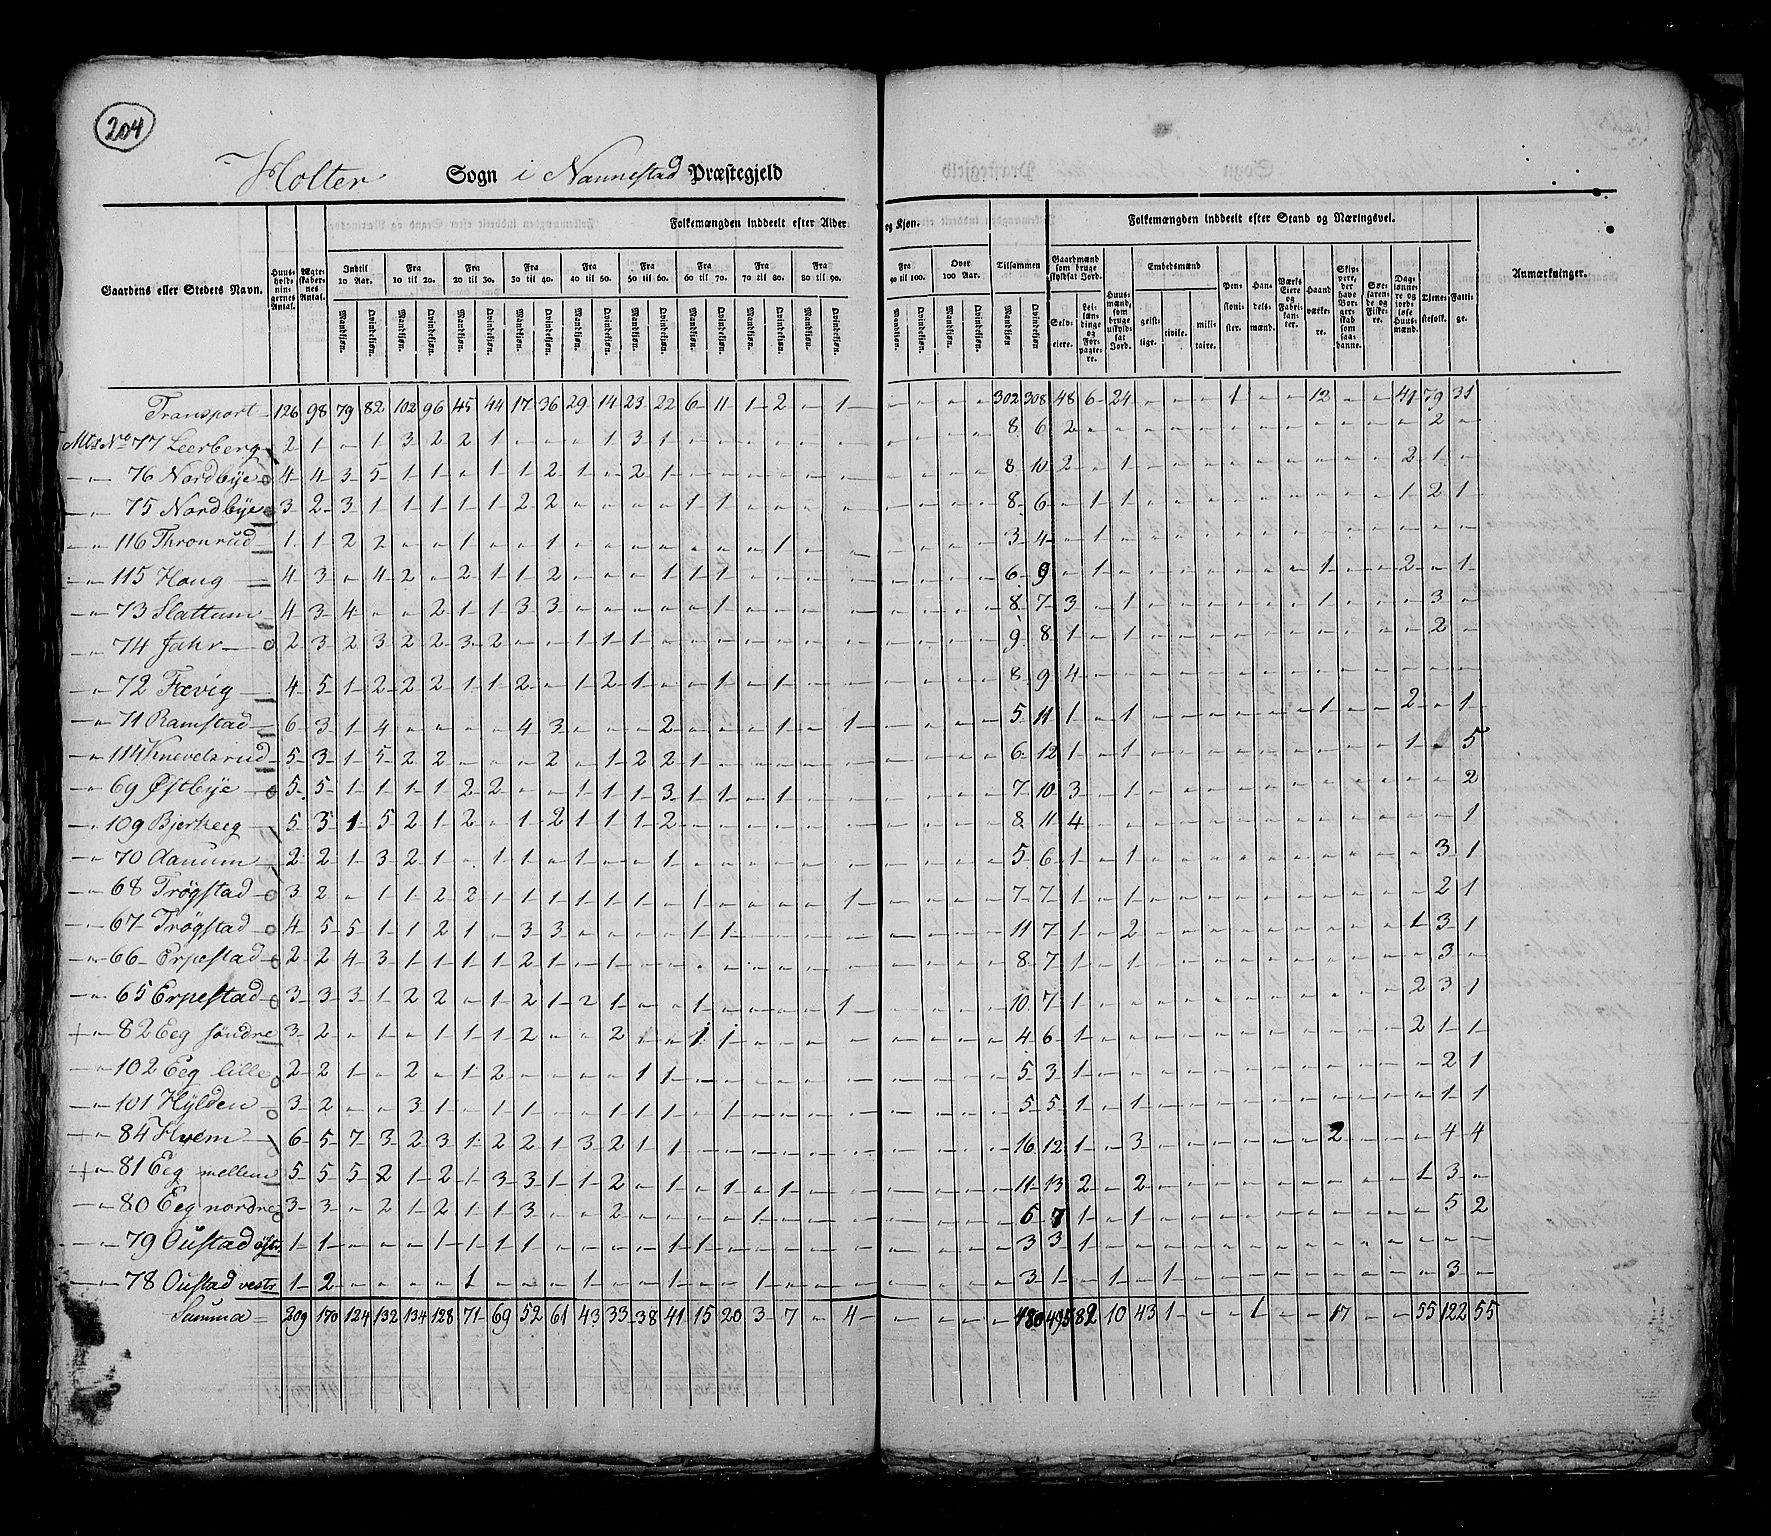 204
Holter Sogn i Nannestad Præstegjeld
Gaardens eller Stedets Navn. Huusholdningernes Antal. Ægteskabernes Antal. Folkemængden inddeelt efter Alder og Kjøn. Tilsammen Folkemængden inddeelt efter Stand og Næringsvei. Anmærkninger.
Indtil 10 Aar. Fra 10 til 20. Fra 20 til 30. Fra 30 til 40. Fra 40 til 50. Fra 50 til 60. Fra 60 til 70. Fra 70 til 80. Fra 80 til 90. Fra 90 til 100. Over 100 Aar. Gaardmænd som bruge skyldsat Jord. Huusmænd, som bruge uskyldsat Jord. Embedsmænd Pensionister. Handelsmænd. Værks Eiere og Fabrikanter. Haandværkere. Skippere, der have Borgerskab som saadanne. Søefarende og Fiskere. Daglønnere og jordløse Huusmænd. Tjenestefolk. Fattige.
Mandkjøn. Qvindekjøn. Mandkjøn. Qvindekjøn. Mandkjøn. Qvindekjøn. Mandkjøn. Qvindekjøn. Mandkjøn. Qvindekjøn. Mandkjøn. Qvindekjøn. Mandkjøn. Qvindekjøn. Mandkjøn. Qvindekjøn. Mandkjøn. Qvindekjøn. Mandkjøn. Qvindekjøn. Mandkjøn. Qvindekjøn. Mandkjøn. Qvindekjøn. Selveiere. Leilændinge og Forpagtere. geistlige. civile. militaire.
Transport 126 98 79 82 102 96 45 44 17 36 29 14 23 22 6 11 1 2 - 1 - - - - 302 308 48 6 24 - - - 1 - - 12 - - 41 79 31
Mtr No 77 Leerberg 2 1 - 1 3 2 2 1 - - - 1 3 1 - - - - - - - - - - 8 6 2 - - - - - - - - - - - - 2 -
- " - 76 Nordbÿe 4 4 3 5 1 1 - 1 1 2 1 - 2 1 - - - - - - - - - - 8 10 2 - 1 - - - - - - - - - 2 1 -
- " - 75 Nordbÿe 3 2 3 1 1 1 1 1 2 2 - - - - 1 1 - - - - - - - - 8 6 - 1 1 - - - - - - - - - 1 2 1
- " - 116 Thronrud 1 1 2 2 - - 1 - - 1 - - - - - - - 1 - - - - - - 3 4 - 1 - - - - - - - - - - - - -
- " - 115 Houg 4 3 - 4 2 - 2 1 1 2 - - - 1 1 1 - - - - - - - - 6 9 - 1 - - - - - - - 1 - - 2 - 1
- " - 73 Slattum 4 3 4 - - 2 1 1 3 3 - - - - - 1 - - - - - - - - 8 7 3 - 1 - - - - - - 1 - - - 3 -
- " - 74 Jahr 2 3 2 3 2 2 3 2 - - 1 1 1 - - - - - - - - - - - 9 8 1 - 1 - - - - - - - - - - 2 -
- " - 72 Fævig 4 5 1 2 2 2 1 1 2 - 1 2 1 - - 1 - 1 - - - - - - 8 9 4 - - - - - - - - - - - - - -
- " - 71 Ramstad 6 3 1 4 - - - - 4 3 - - - 2 - - - 1 - 1 - - - - 5 11 1 - 1 - - - - - - 1 - - 2 - 1
- " - 114 Knevelsrud 5 3 1 5 2 2 - - - 2 - 1 2 2 1 - - - - - - - - - 6 12 1 - 1 - - - - - - - - - 1 - 5
- " - 69 Østbÿe 5 5 1 1 1 1 2 2 - - 1 1 1 3 1 1 - 1 - - - - - - 7 10 3 - 1 - - - - - - - - - - - 2
- " - 109 Bjerkeeg 5 3 1 5 2 1 2 - 1 2 1 1 1 2 - - - - - - - - - - 8 11 4 - - - - - - - - - - - - - 1
- " - 70 Aanum 2 2 1 3 2 1 - 1 1 - 1 - - 1 - - - - - - - - - - 5 6 1 - 1 - - - - - - - - - - 3 1
- " - 68 Trøgstad 3 2 - 1 1 2 2 1 1 1 1 1 1 - 1 - - - - 1 - - - - 7 7 1 - 1 - - - - - - - - - - 2 1
- " - 67 Trøgstad 4 5 5 1 1 2 1 - 3 3 - - - - 1 1 - - - - - - - - 11 7 1 - 2 - - - - - - - - - 1 3 1
- " - 66 Erpestad 2 2 4 3 1 1 1 1 2 1 - 1 - - - - - - - - - - - - 8 7 1 - 1 - - - - - - - - - - 3 -
- " - 65 Erpestad 3 3 3 1 2 2 - 1 2 1 2 1 - - 1 - - - - 1 - - - - 10 7 1 - - - - - - - - - - - 2 3 1
+ " - 82 Eeg søndre 3 2 - 1 - 1 1 1 2 - - 2 - - 1 1 - - - - - - - - 4 6 1 - - - - - - - - - - - 2 1 1
- " - 102 Eeg lille 2 2 1 - 2 - 1 2 - - - - 1 1 - - - - - - - - - - 5 3 1 - - - - - - - - - - - - 2 1
- " - 101 Hÿlden 3 2 - - 3 1 - 1 1 - - 1 1 1 - 1 - - - - - - - - 5 5 1 - 1 - - - - - - - - - - 1 1
- " - 84 Hvem 6 5 7 3 2 3 1 2 2 1 3 2 1 1 - - - - - - - - - - 16 12 1 - 3 - - - - - - 2 - - - 4 4
+ " - 81 Eeg mellem 5 5 5 2 1 2 1 3 3 1 1 2 - 1 - 1 - 1 - - - - - - 11 13 2 - 2 - - - - - - - - - 1 3 -
- " - 80 Eeg nordre 3 3 - 2 1 2 1 1 3 - - 2 - - - - 1 - - - - - - - 6 7 1 - 1 - - - - - - - - - - 5 2
- " - 79 Oustad østr 1 1 - - - 1 1 1 1 - - - - 1 1 - - - - - - - - - 3 3 1 - - - - - - - - - - - - - -
- " - 78 Oustad vestr 1 2 - - - - 1 - - - 1 - - 1 - - 1 - - - - - - - 3 1 - - 1 - 1 - - - - - - - - 3 -
Summa 209 170 124 132 134 128 71 69 52 61 43 33 38 41 15 20 3 7 - 4 - - - - 480 495 82 10 43 1 - - 1 - - 17 - - 55 122 55